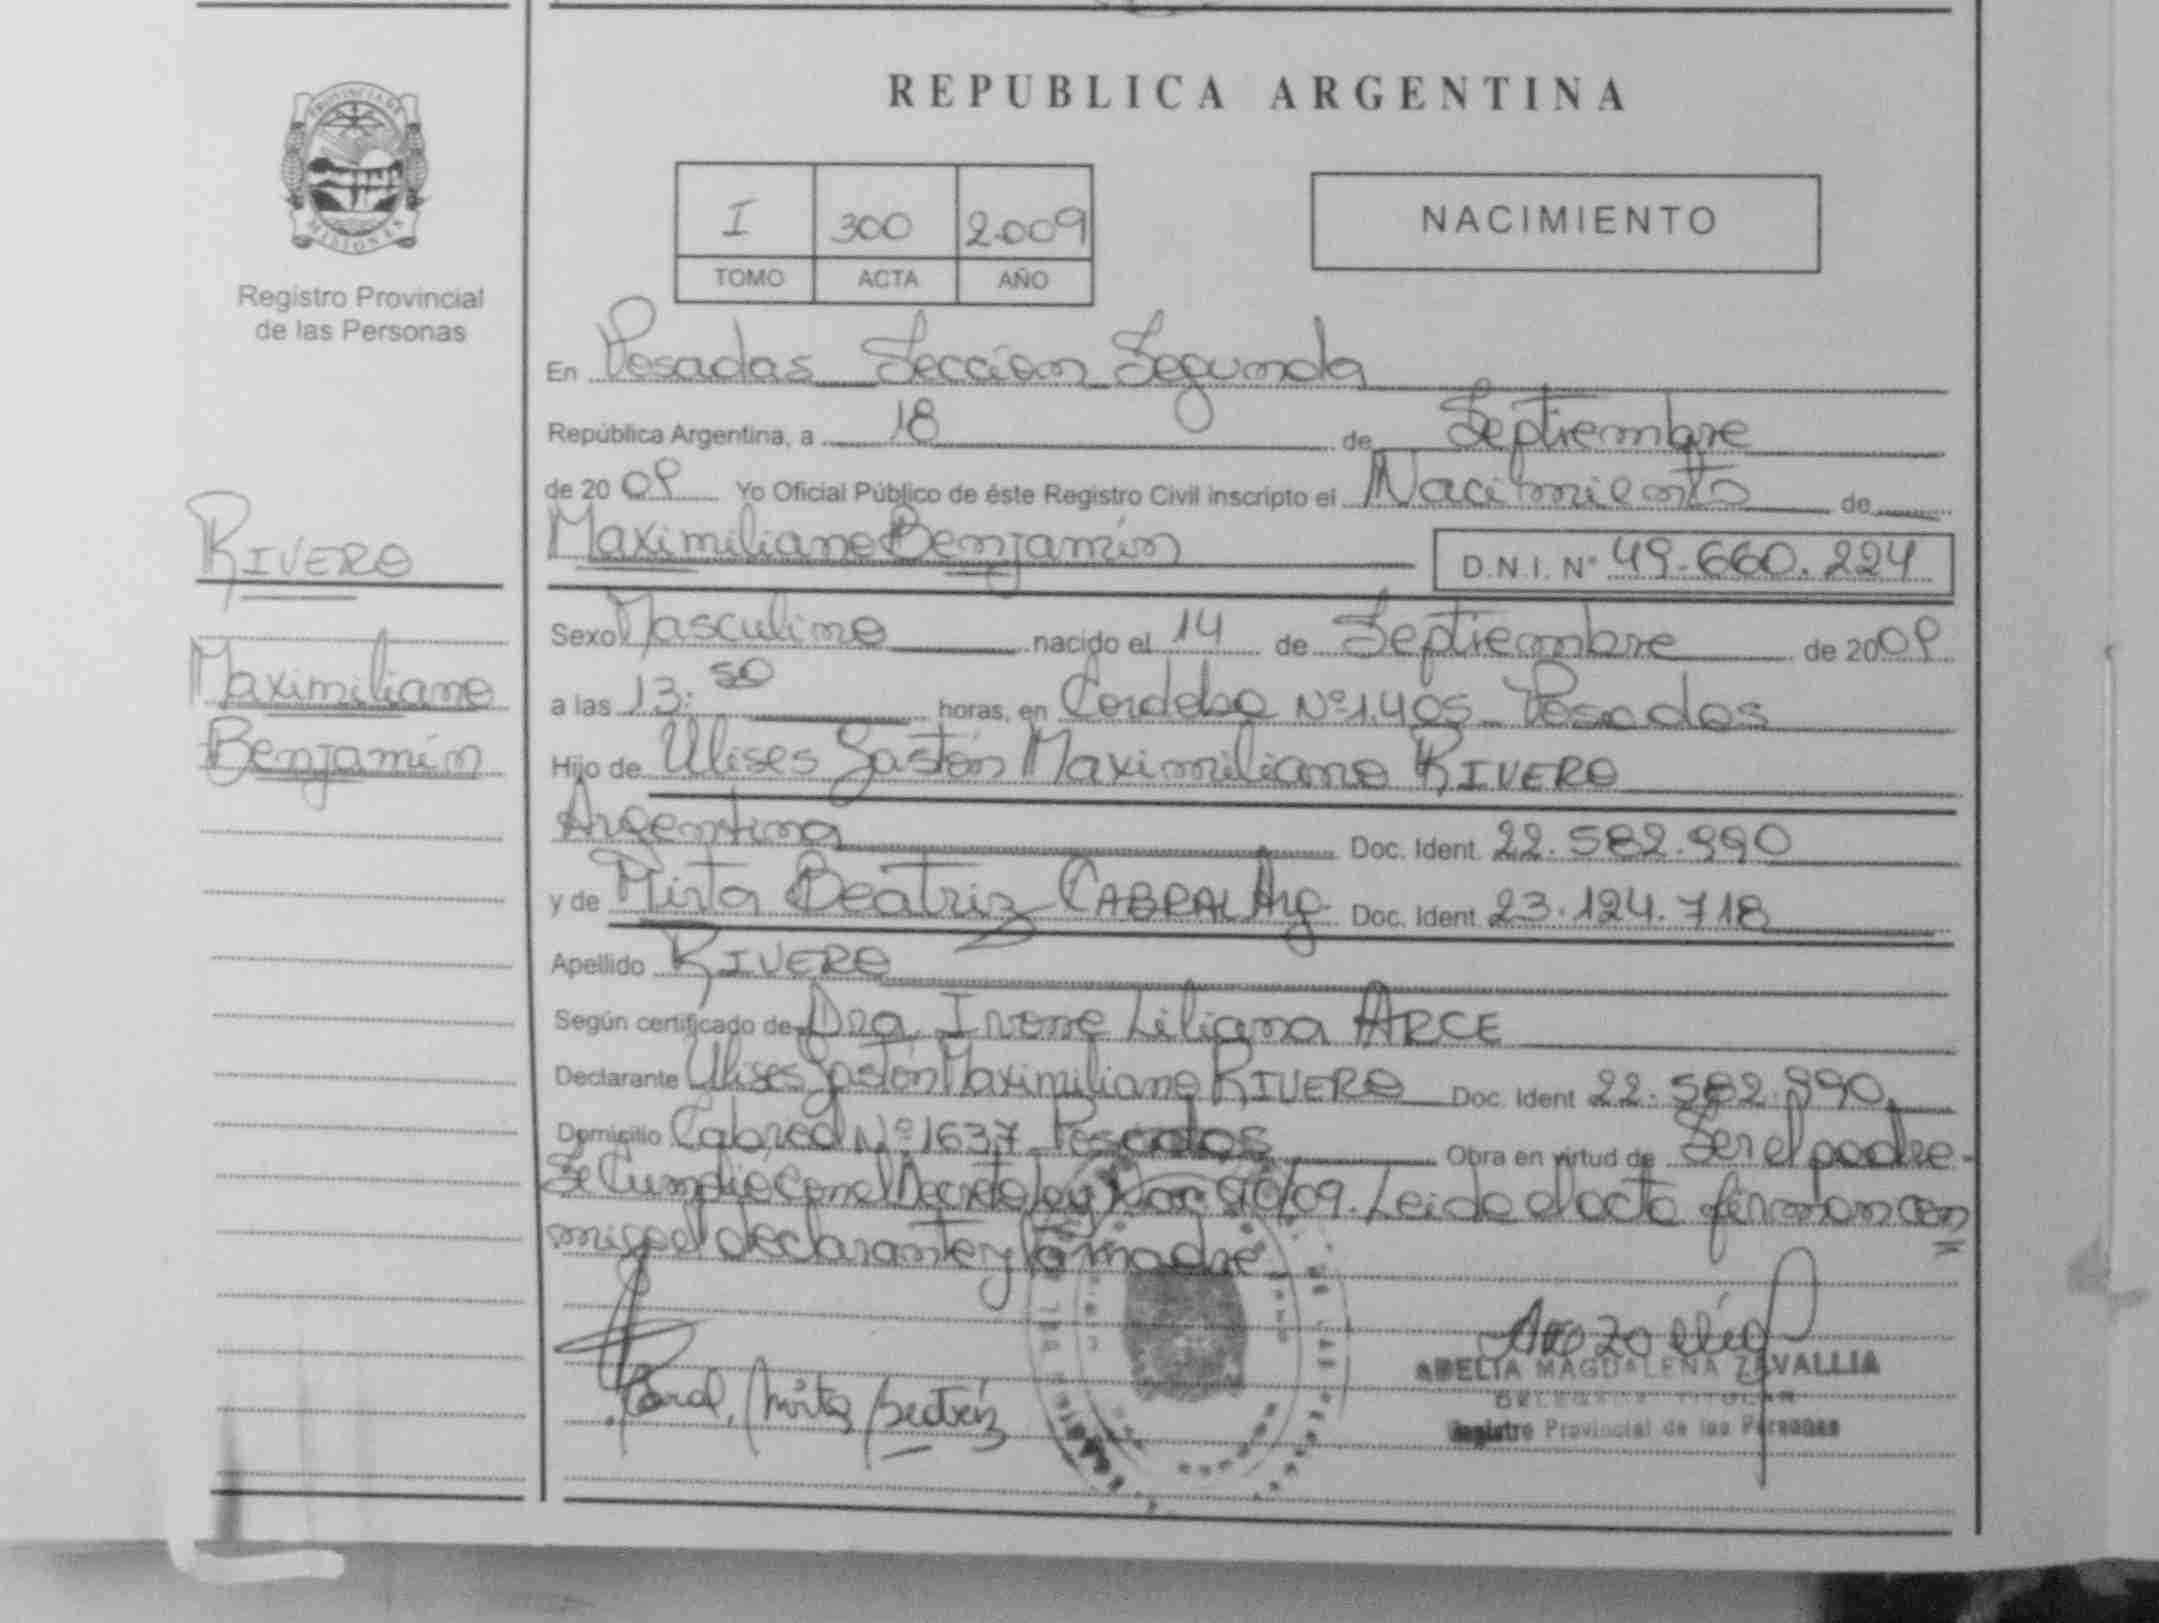 REPUBLICA ARGENTINA
PROVINCIA DE
MISIONES
Registro Provincial
de las Personas
I 300 2.009
TOMO ACTA AÑO
NACIMIENTO
En Posadas Sección Segunda
República Argentina, a 18 de Septiembre
de 2009 Yo Oficial Público de éste Registro Civil inscripto el Nacimiento de
Maximiliano Benjamín D.N.I. Nº 49.660.224
RIVERO
Maximiliano
Benjamín
Sexo Masculino nacido el 14 de Septiembre de 2009
a las 13:50 horas, en Cordoba Nº 1.405 Posadas
Hijo de Ulises Gastón Maximiliano RIVERO
Argentina Doc. Ident. 22.582.990
y de Mirta Beatriz CABRAL Arg Doc. Ident 23.124.718
Apellido RIVERO
Según certificado de Dra. Ivone Liliana ARCE
Declarante Ulises Gastón Maximiliano RIVERO Doc. Ident 22.582.990
Domicilio Cabred Nº 1637 Posadas Obra en virtud de Ser el padre-
Se Cumplió con el Decreto Ley 90/09. Leída el acta firman con
migo el declarante y la madre
Mirta Beatriz
ADELIA MAGDALENA ZAVALLIA
DELEGADA TITULAR
Registro Provincial de las Personas